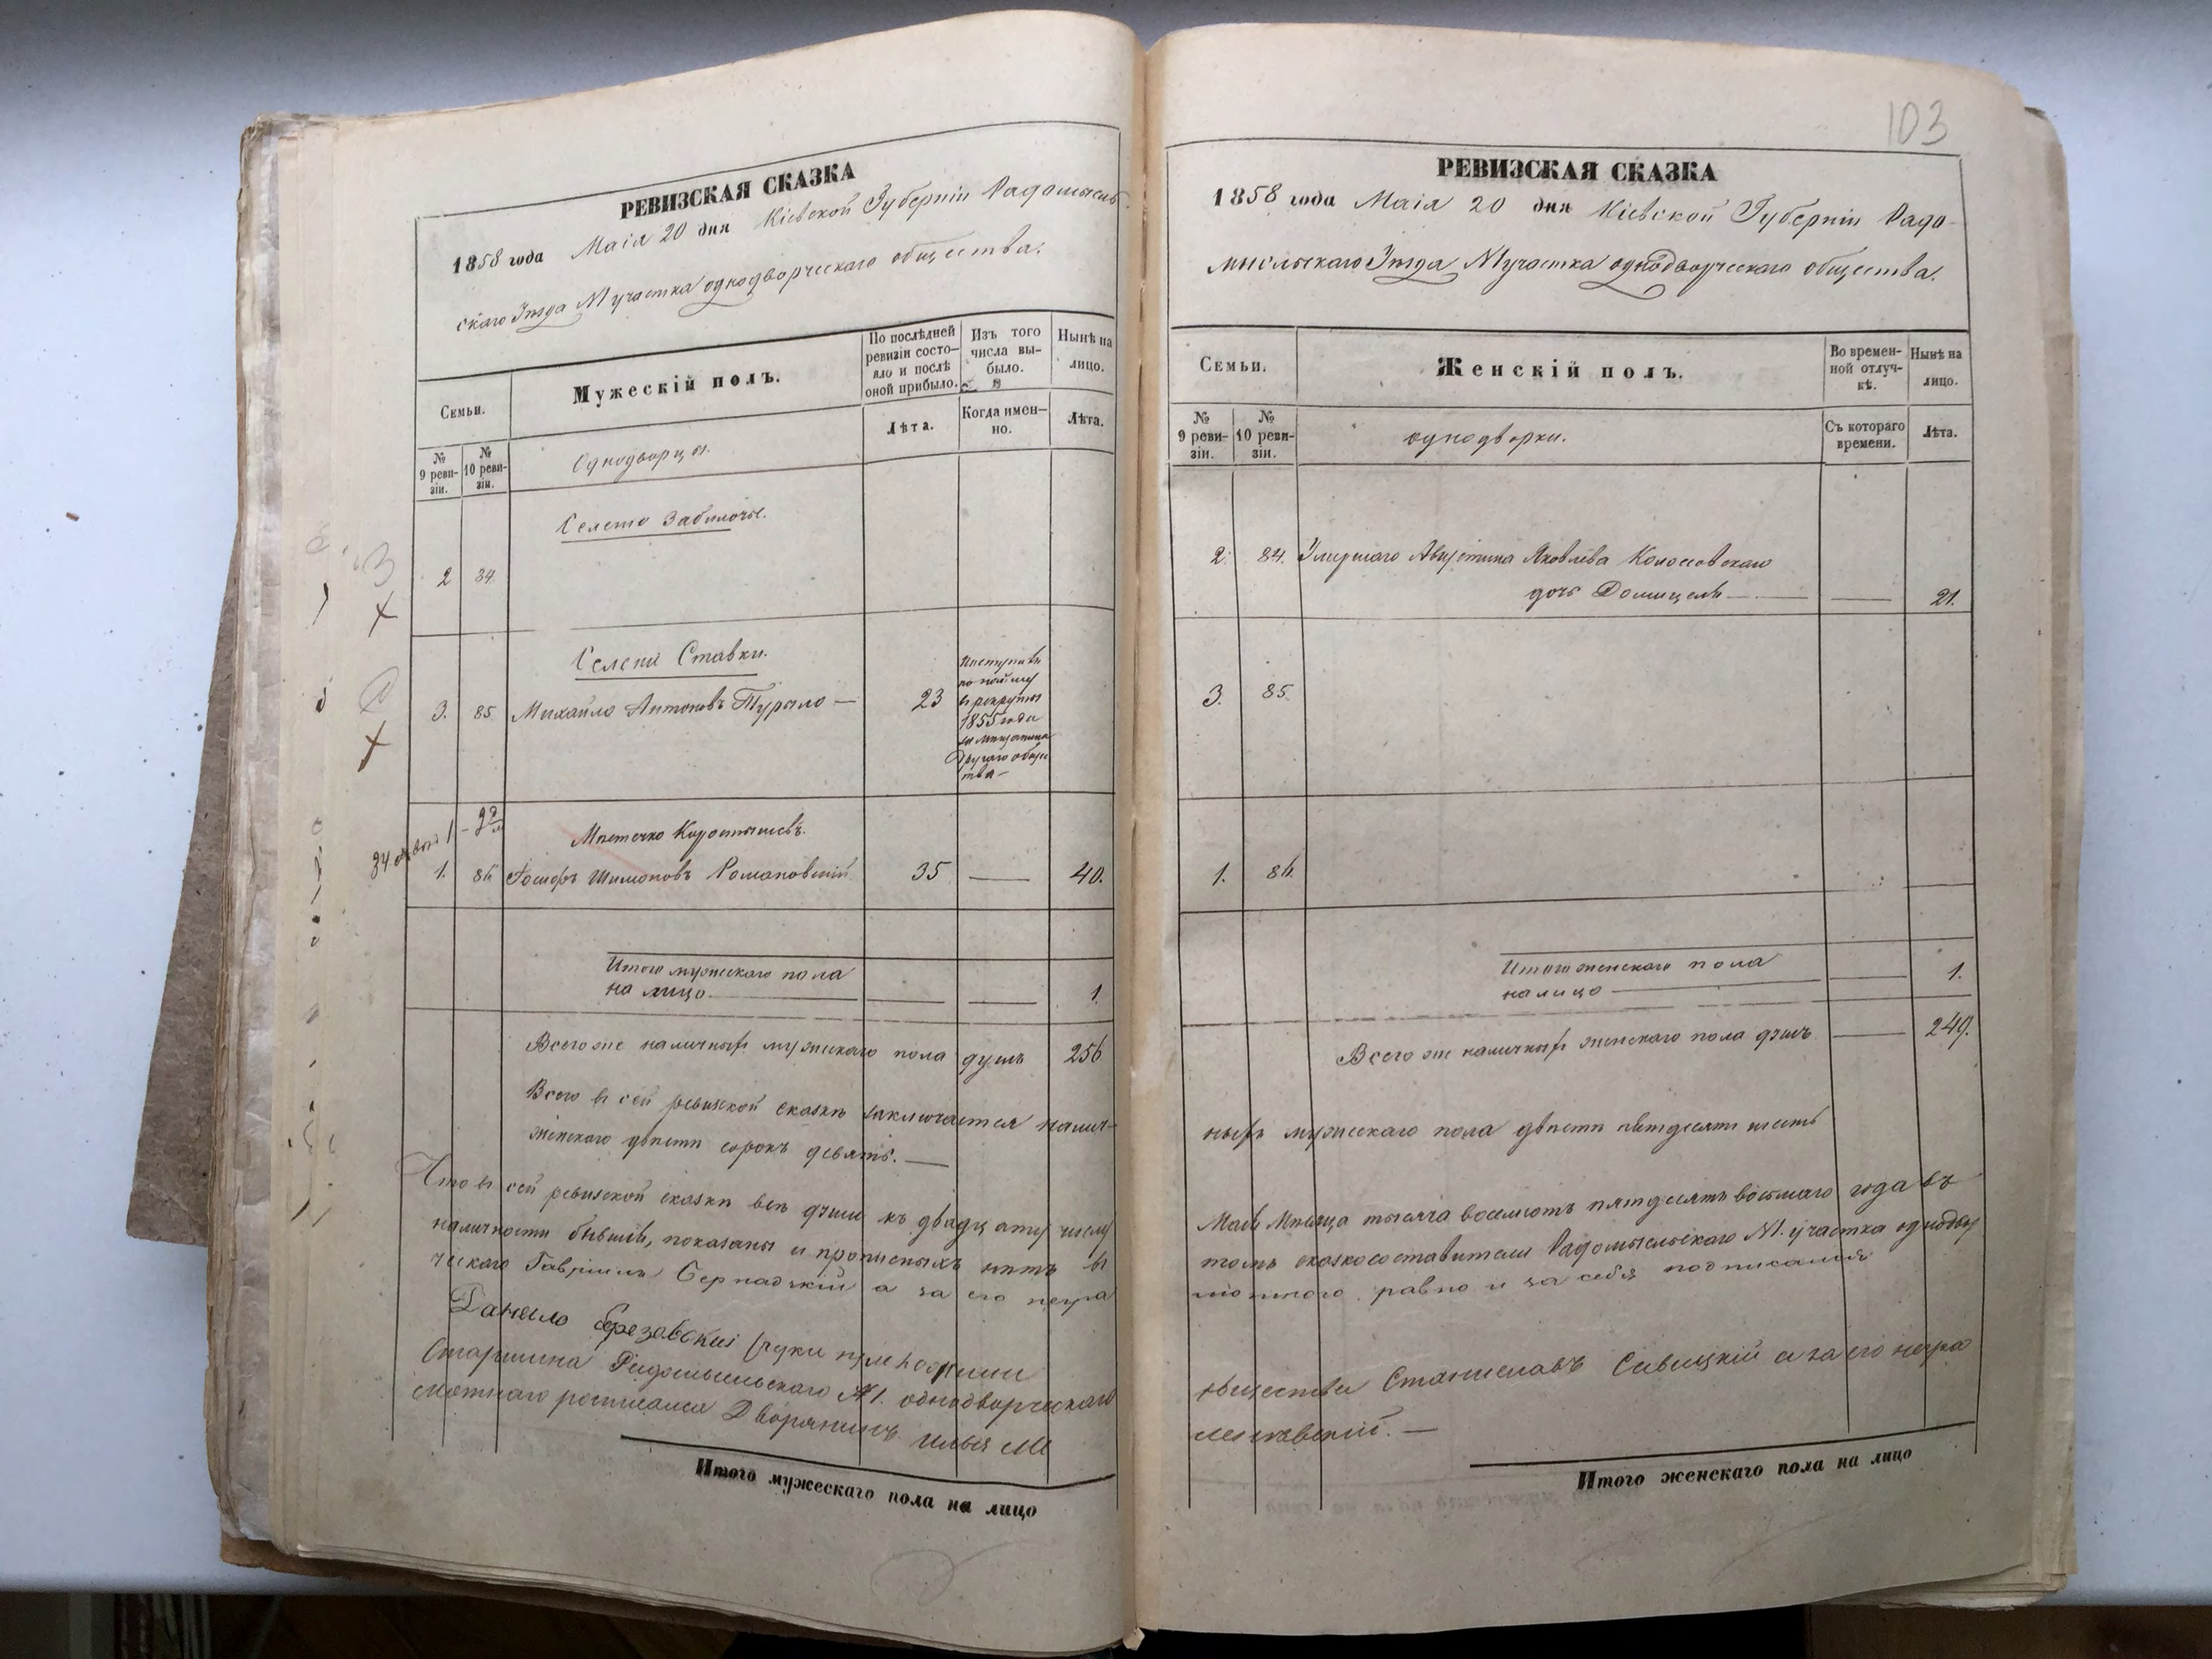 РЕВИЗСКАЯ СКАЗКА
1858 года Маія 20 дня Кіевской Губерніи Радомысль-
скаго Уѣзда №1 участка однодворческаго общества.
Семьи.
Мужескій полъ.
По послѣдней ревизіи состо-яло и послѣ оной прибыло.
Изъ того числа вы-было.
Нынѣ на лицо.
№ 9 реви-зіи.
№ 10 реви-зіи.
Однодворцы.
Лѣта.
Когда имен-но.
Лѣта.
Селето Заболочье.
2 84.
Селени Ставки.
3. 85. Михайло Антоновъ Турыло — 23
1855 года
другаго обще
тва —
Мѣстечко Коростышевъ.
1. 86. Іосифъ Шимоновъ Романовскій 35 — 40.
Итого мужескаго пола
на лицо — — — 1.
Всего же наличныхъ мужескаго пола душъ 256
Всего въ сей ревизской сказкѣ заключается налич-
женскаго двѣсти сорокъ девять. —
Что въ сей ревизской сказкѣ всѣ души къ двадцатому числу
наличности бывшіе, показаны и прописныхъ нѣтъ въ
ческаго Гавріилъ а за его негра
Данило Березовскій руку приложилъ
Старшина Радомысльскаго №1. однодворческаго
мотнаго росписался Дворянинъ Илья
Итого мужескаго пола на лицо
103
РЕВИЗСКАЯ СКАЗКА
1858 года Маія 20 дня Кіевской Губерніи Радо-
мысльскаго Уѣзда №1 участка однодворческаго общества.
Семьи.
Женскій полъ.
Во времен-ной отлуч-кѣ.
Нынѣ на лицо.
№ 9 реви-зіи.
№ 10 реви-зіи.
однодворки.
Съ котораго времени.
Лѣта.
2. 84. Умершаго Августина Яковлева Колосовскаго
дочь Домицеля — — 21.
3. 85.
1. 86.
Итого женскаго пола
на лицо — — 1.
Всего же наличныхъ женскаго пола душъ — 249.
ныхъ мужескаго пола двѣсти пятдесятъ шесть
Маія Мѣсяца тысяча восемсотъ пятдесятъ восьмаго года въ
томъ сказкосоставители Радомысльскаго №1. участка однодвор
мотнаго равно и за себя подписался
общества Станиславъ Савицкій а за его негра
Итого женскаго пола на лицо